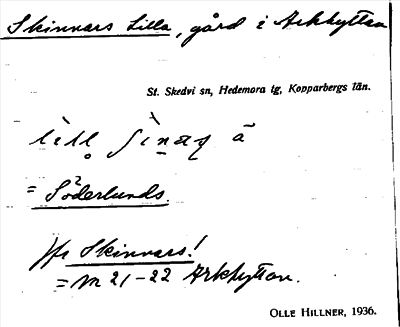 Skinnars Lilla, gård i Arkhyttan
St. Skedvi sn, Hedemora tg, Kopparbergs län.
= Söderlunds.
Jfr Skinnars!
= M 21–22 Arkhyttan.
OLLE HILLNER, 1936.